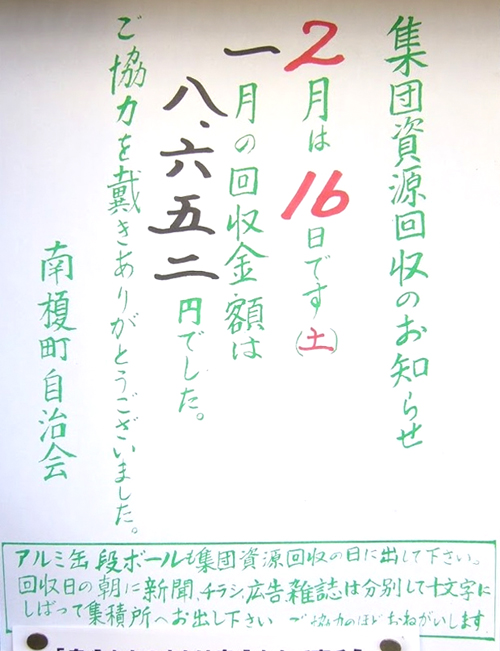 集団資源回収のお知らせ
2月は16日です(土)
一月の回収金額は
八.六五二円でした。
ご協力を戴きありがとうございました。
南榎町自治会
アルミ缶段ボールも集団資源回収の日に出して下さい。
回収日の朝に新聞、チラシ、広告雑誌は分別して十文字に
しばって集積所へお出し下さい ご協力のほどおねがいします